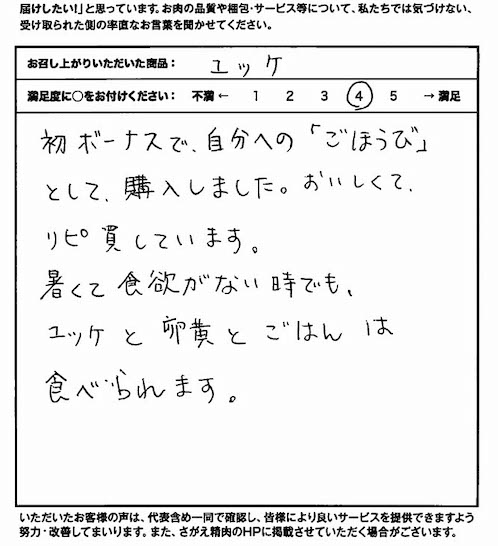 届けしたい!」と思っています。お肉の品質や梱包・サービス等について、私たちでは気づけない、
受け取られた側の率直なお言葉を聞かせてください。
お召し上がりいただいた商品： ユッケ
満足度に○をお付けください： 不満 ← 1 2 3 4 5 → 満足
初ボーナスで、自分への「ごほうび」
として、購入しました。おいしくて、
リピ買しています。
暑くて食欲がない時でも、
ユッケと卵黄とごはんは
食べられます。
いただいたお客様の声は、代表含め一同で確認し、皆様により良いサービスを提供できますよう
努力・改善してまいります。また、さがえ精肉のHPに掲載させていただく場合がございます。